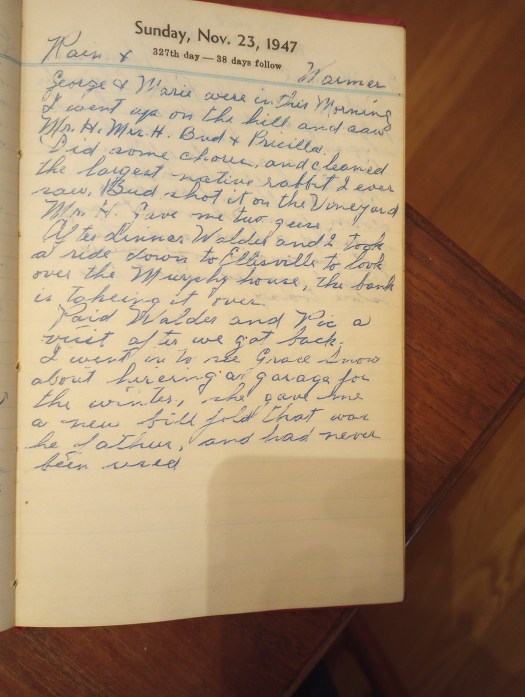 Sunday, Nov. 23, 1947
327th day — 38 days follow
Rain & Warmer
George & Marie were in this Morning
I went up on the hill and saw
Mr. H. Mrs. H. Bud & Pricilla.
Did some chores, and cleaned
the largest native rabbit I ever
saw. Bud shot it on the Vineyard
Mrs. H. Gave me two geese.
After dinner Walder and I took
a ride down to Ellisville to look
over the Murphy house, the bank
is takeing it over.
Paid Walder and Vic a
visit after we got back.
I went in to see Grace Snow
about hireing a garage for
the winter, she gave me
a new bill fold that was
he father, and had never
been used